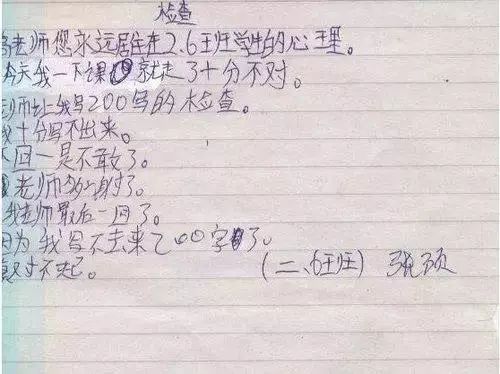 检查
老师您永远居住在2.6班学生的心里。
今天我一下课就走了十分不对。
老师让我写200写的检查。
我十分写不出来。
下回一是不敢了。
老师多谢了。
我老师最后一回了。
因为我写不去来200字了。
对不起。
(二、6班) 张